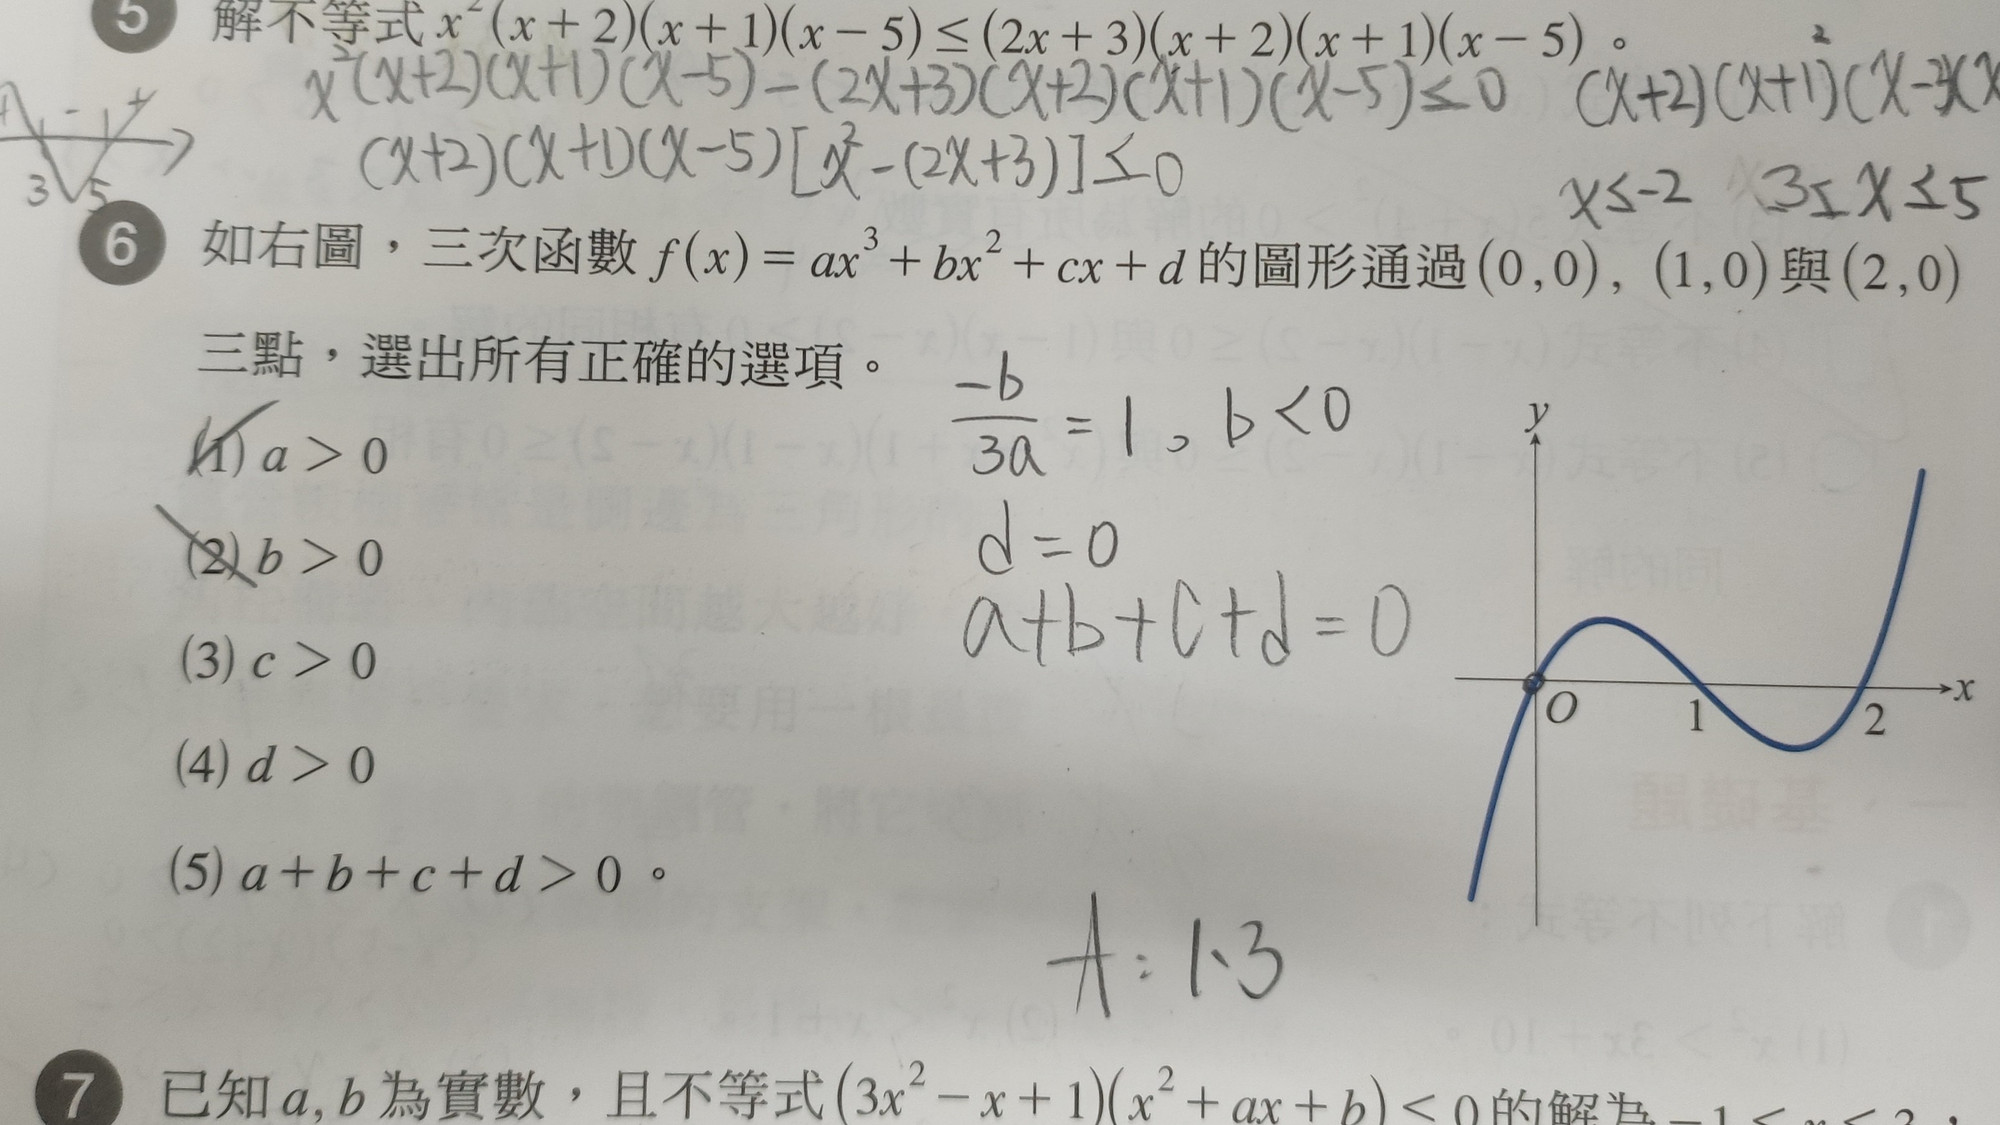 5 解不等式 x²(x+2)(x+1)(x-5)≤(2x+3)(x+2)(x+1)(x-5)。
x²(x+2)(x+1)(x-5)-(2x+3)(x+2)(x+1)(x-5)≤0
(x+2)(x+1)²(x-3)(x
+ - +
3 5
(x+2)(x+1)(x-5)[x²-(2x+3)]≤0
x≤-2 3≤x≤5
6 如右圖,三次函數 f(x)=ax³+bx²+cx+d 的圖形通過(0,0),(1,0)與(2,0)
三點,選出所有正確的選項。
-b/3a=1,b<0
(1) a>0
(2) b>0
d=0
a+b+c+d=0
(3) c>0
(4) d>0
(5) a+b+c+d>0。
y
x
O
1
2
A:1、3
7 已知 a, b 為實數,且不等式(3x²-x+1)(x²+ax+b)<0的解為